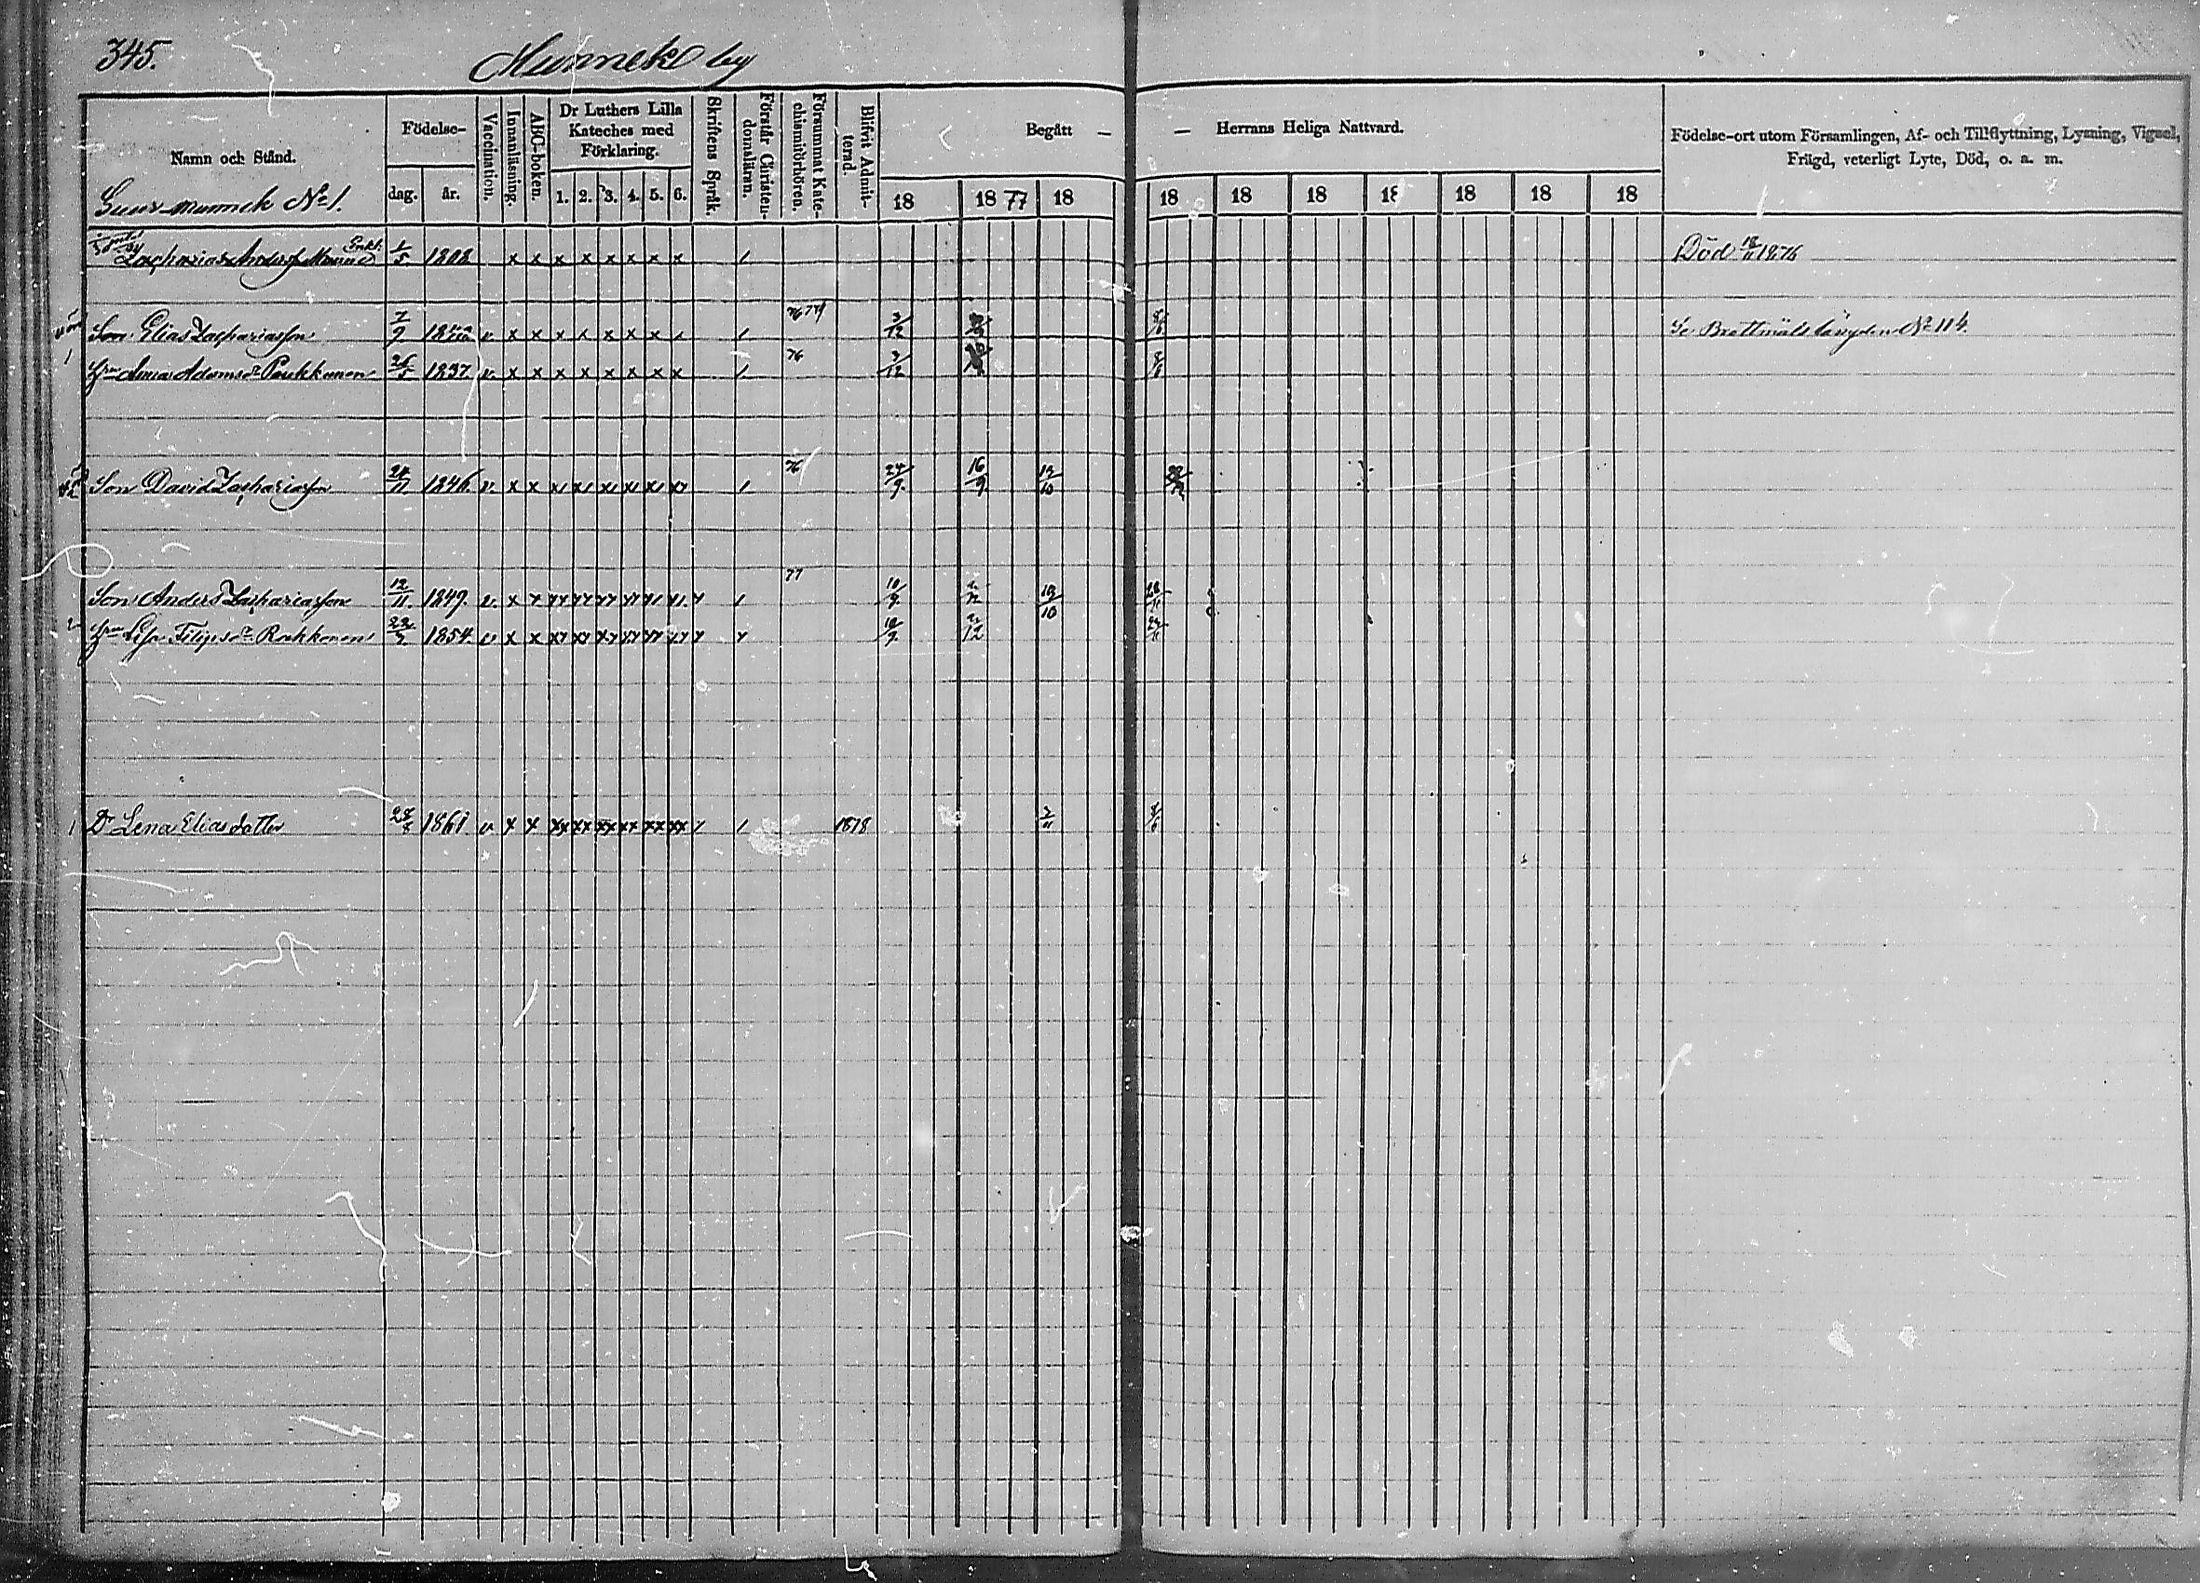 345.
Munnek by
Namn och Stånd.
Födelse-
dag. år.
Vaccination.
Innanläsning.
ABC-boken.
Dr Luthers Lilla Kateches med Förklaring.
1. 2. 3. 4. 5. 6.
Skriftens Språk.
Förstår Christendomsläran.
Försummat Katechismiförhören.
Blifvit Admitterad.
Begått — — Herrans Heliga Nattvard.
18 18 77 18 18 18 18 18 18 18 18
Födelse-ort utom Församlingen, Af- och Tillflyttning, Lysning, Vigsel,
Frägd, veterligt Lyte, Död, o. a. m.
Munnek No 1.
Zacharias Anders Munne Enkl. 1/5 1808 x x x x x x x x 1 Död 18/11 1876
Son Elias Zachariasson 7/9 v. x x x x x x x 1 76 79 2/12 Se Brottmåls längden No 116.
Hu Anna Adamsdr Puukkonen 1837. v. x x x x x x x x 1 76 2/12
Son David Zachariasson 24/11 1846. v. x x 1 76 24/9. 16/9. 13/10
Son Anders Zachariasson 12/11. 1849. v. x 1 77 10/9. 13/10
Hu Lisa Filipsdr Rahkonen 1854. v x x 10/9. 2/12
1 Dr Lena Elias dotter 1861. v x x xx xx xx xx xx xx 1 1878 2/11